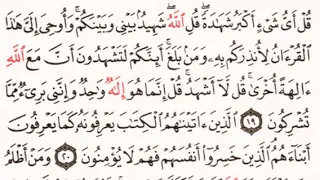 قُلْ أَىُّ شَىْءٍ أَكْبَرُ شَهَٰدَةً ۖ قُلِ ٱللَّهُ ۖ شَهِيدٌۢ بَيْنِى وَبَيْنَكُمْ ۚ وَأُوحِىَ إِلَىَّ هَٰذَا
ٱلْقُرْءَانُ لِأُنذِرَكُم بِهِۦ وَمَنۢ بَلَغَ ۚ أَئِنَّكُمْ لَتَشْهَدُونَ أَنَّ مَعَ ٱللَّهِ
ءَالِهَةً أُخْرَىٰ ۚ قُل لَّآ أَشْهَدُ ۚ قُلْ إِنَّمَا هُوَ إِلَٰهٌ وَٰحِدٌ وَإِنَّنِى بَرِىٓءٌ مِّمَّا
تُشْرِكُونَ ١٩ ٱلَّذِينَ ءَاتَيْنَٰهُمُ ٱلْكِتَٰبَ يَعْرِفُونَهُۥ كَمَا يَعْرِفُونَ
أَبْنَآءَهُمُ ٱلَّذِينَ خَسِرُوٓا۟ أَنفُسَهُمْ فَهُمْ لَا يُؤْمِنُونَ ٢٠ وَمَنْ أَظْلَمُ